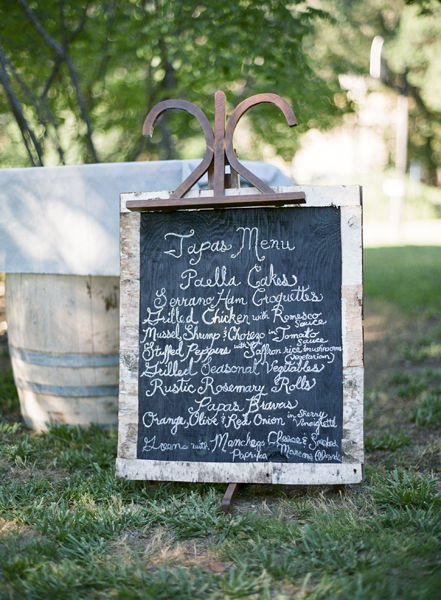 Tapas Menu
Paella Cakes
Serrano Ham Croquettes
Grilled Chicken with Romesco Sauce
Mussel, Shrimp & Chorizo in Tomato Sauce
Stuffed Peppers with Saffron rice, mushrooms (vegetarian)
Grilled Seasonal Vegetables
Rustic Rosemary Rolls
Papas Bravas
Orange, Olive & Red Onion in Sherry Vinaigrette
Greens with Manchego Cheese & Smoked
Paprika Marcona Almonds